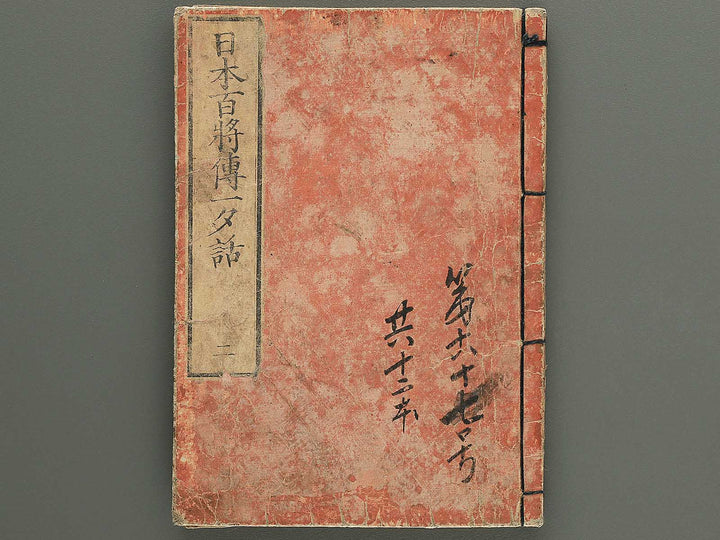 第六十七号
共十二本
日本百將傳一夕話
二